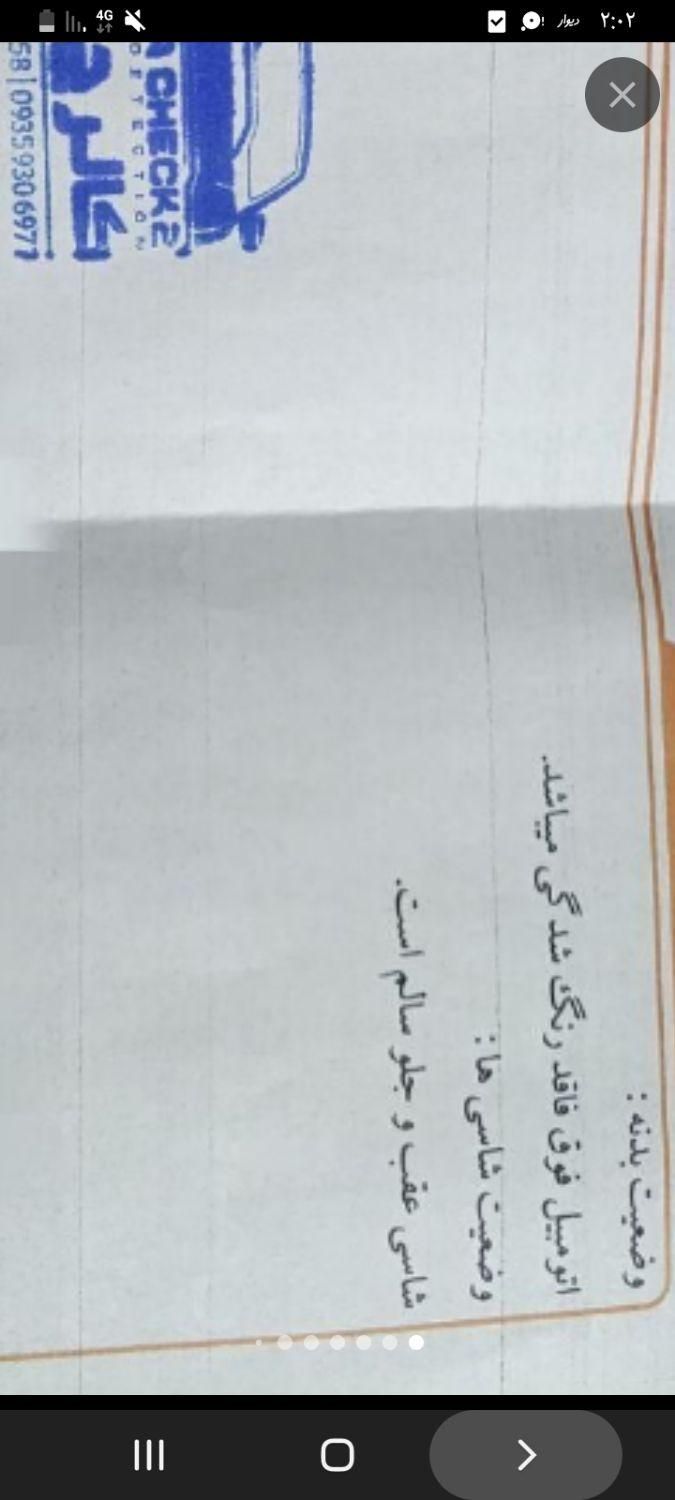 ۲:۰۲
دیوار
4G
CHECK 2
DETECTION
58|09359306977
وضعیت بدنه :
اتومبیل فوق فاقد رنگ شدگی میباشد.
وضعیت شاسی ها :
شاسی عقب و جلو سالم است.